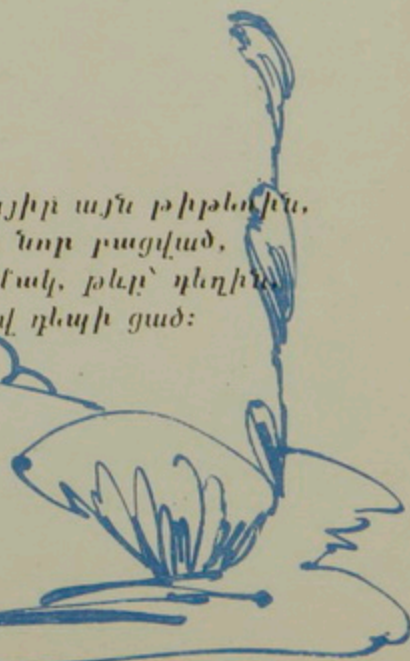 այն թիթեռին,
նոր բացված,
թևը՝ դեղին,
դեպի ցած: